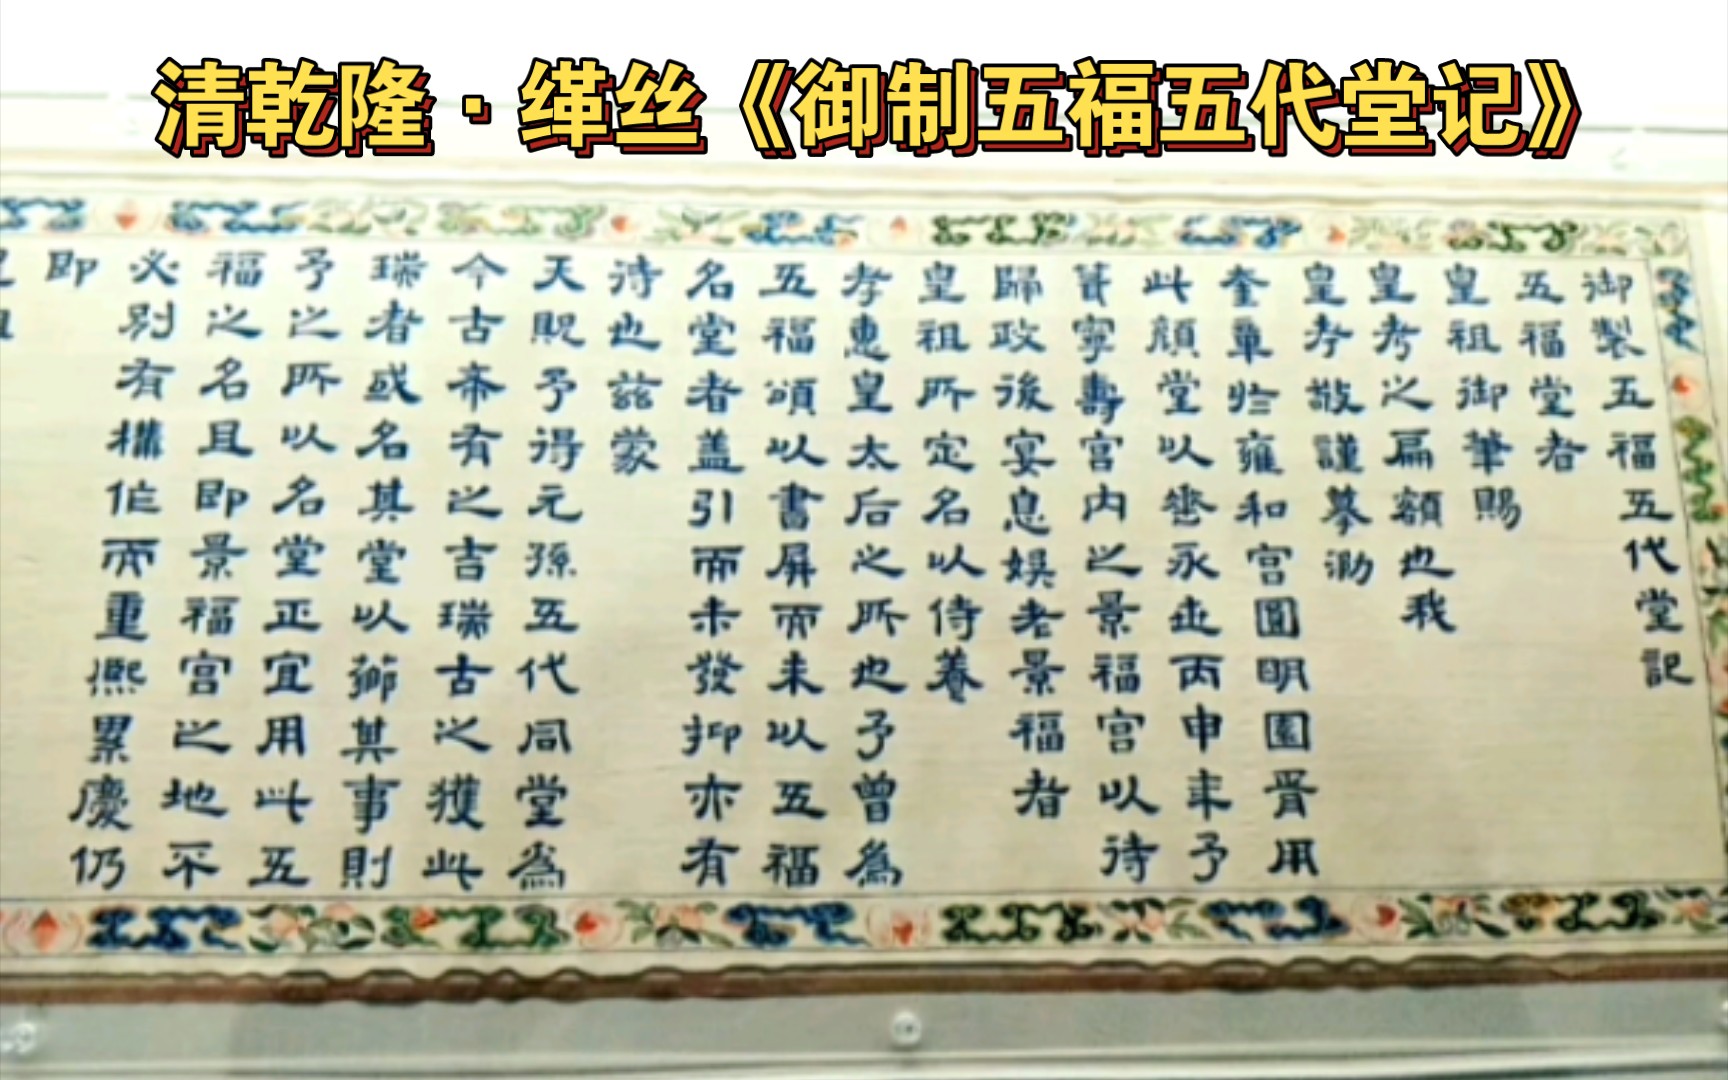 清乾隆·缂丝《御制五福五代堂记》
御製五福五代堂記
五福堂者
皇祖御筆賜
皇考之扁額也我
皇考敬謹摹泐
奎章於雍和宮圓明園胥用
此顏堂以垂永世丙申年予
葺寧壽宮内之景福宮以待
歸政後宴息娛老景福者
皇祖所定名以侍養
孝惠皇太后之所也予曾為
五福頌以書屏而未以五福
名堂者盖引而未發抑亦有
待也兹蒙
天貺予得元孫五代同堂為
今古希有之吉瑞古之獲此
瑞者或名其堂以其事則
予之所以名堂正宜用此五
福之名且即景福宮之地不
必別有構作而重熙累慶仍
即